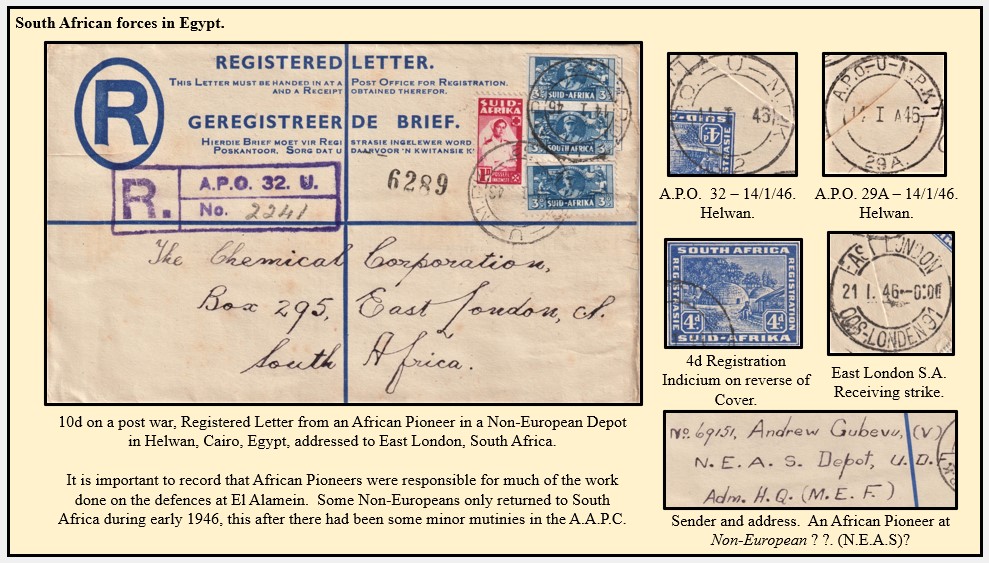 South African forces in Egypt.
REGISTERED LETTER.
THIS LETTER MUST BE HANDED IN AT A POST OFFICE FOR REGISTRATION,
AND A RECEIPT OBTAINED THEREFOR.
R
GEREGISTREERDE BRIEF.
HIERDIE BRIEF MOET VIR REGISTRASIE INGELEWER WORD
POSKANTOOR. SORG DAT U DAARVOOR 'N KWITANSIE K
SUID-AFRIKA
SUID-AFRIKA
SUID-AFRIKA
SUID-AFRIKA
R.
A.P.O. 32. U.
No. 2241
6289
The Chemical Corporation,
Box 295, East London, S.
South Africa.
10d on a post war, Registered Letter from an African Pioneer in a Non-European Depot
in Helwan, Cairo, Egypt, addressed to East London, South Africa.
It is important to record that African Pioneers were responsible for much of the work
done on the defences at El Alamein. Some Non-Europeans only returned to South
Africa during early 1946, this after there had been some minor mutinies in the A.A.P.C.
A.P.O. 32 – 14/1/46.
Helwan.
A.P.O.-U-M.P.K
14 I A46
29A.
A.P.O. 29A – 14/1/46.
Helwan.
SOUTH AFRICA
REGISTRASIE
REGISTRATION
4d 4d
SUID-AFRIKA
4d Registration
Indicium on reverse of
Cover.
EAST LONDON
21 I. 46
OOS-LONDEN 91
East London S.A.
Receiving strike.
No. 69151, Andrew Gubevu, (V)
N.E.A.S. Depot, U.D.F.
Adm. H.Q. (M.E.F.)
Sender and address. An African Pioneer at
Non-European ? ?. (N.E.A.S)?